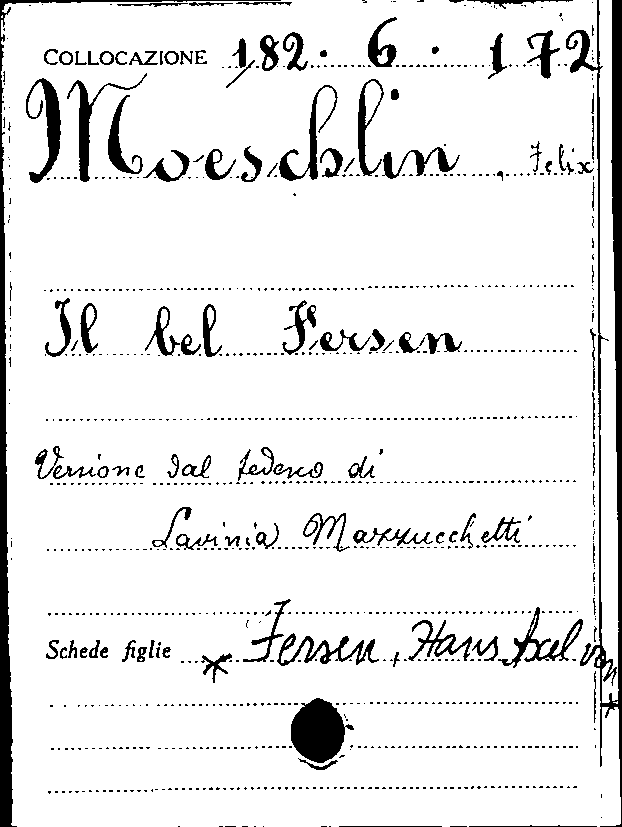 COLLOCAZIONE 182. 6. 172
Moeschlin, Felix
Il bel Fersen
Versione dal tedesco di
Lavinia Mazzucchetti
Schede figlie * Fersen, Hans Axel von *